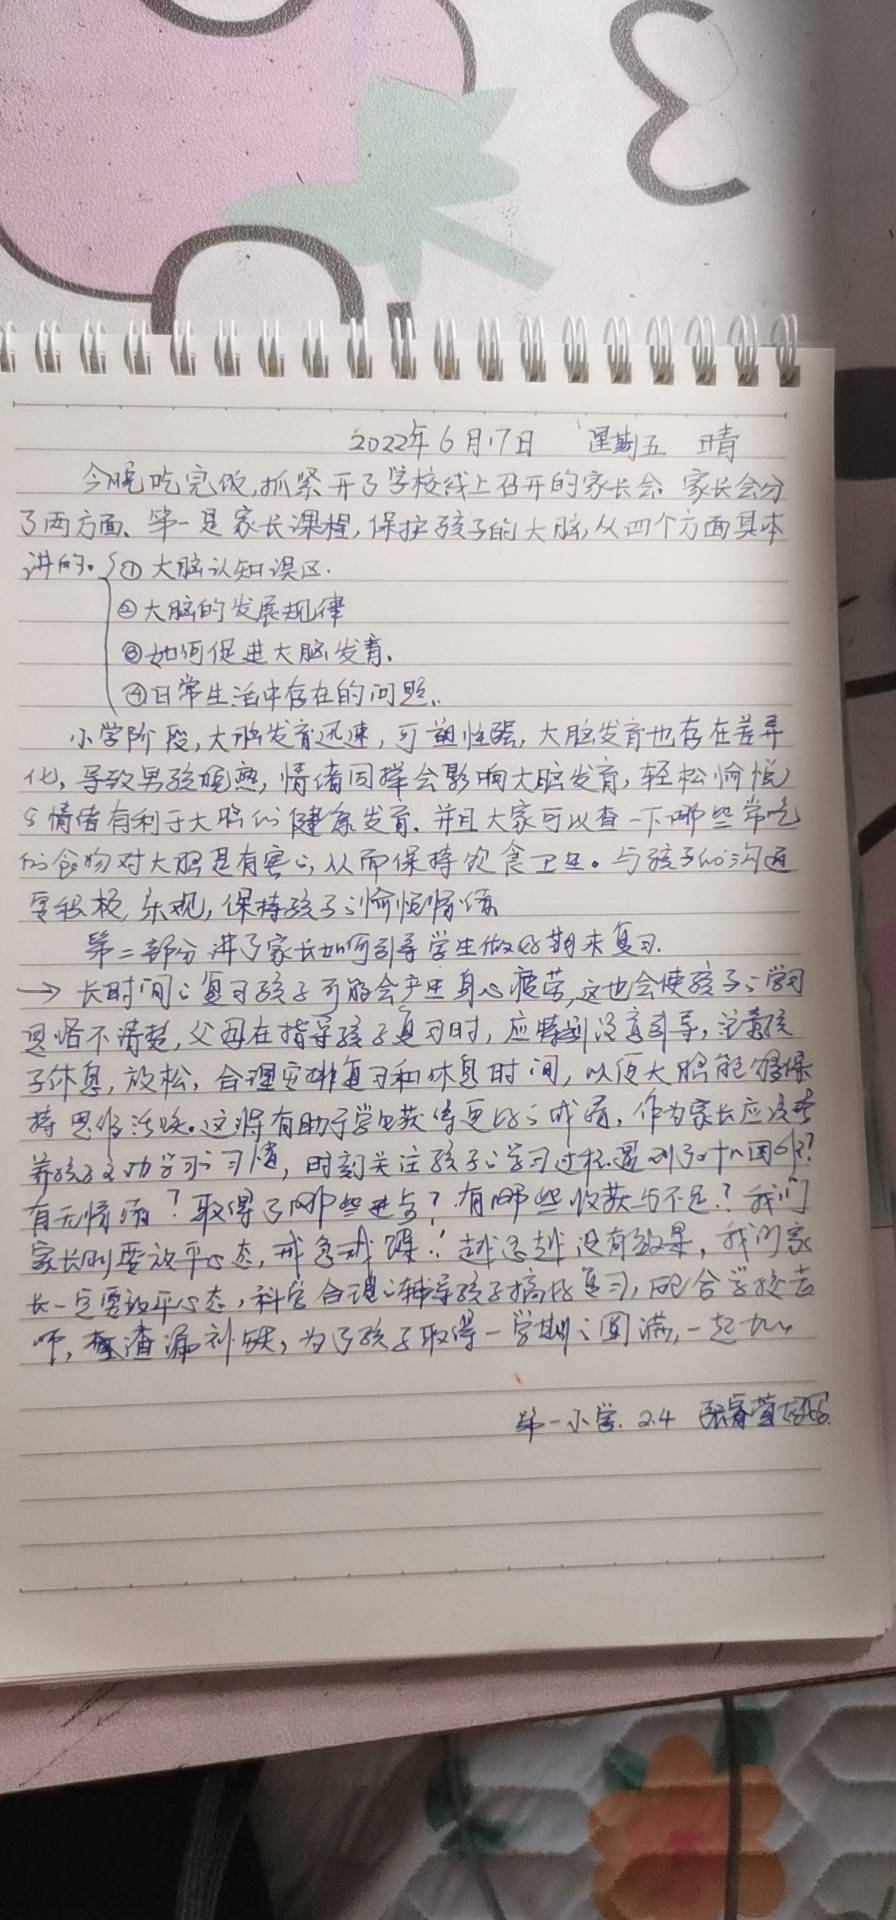 3
2022年6月17日 星期五 晴
今晚吃完饭,抓紧开了学校线上召开的家长会。家长会分
了两方面、第一是家长课程,保护孩子的大脑,从四个方面具体
讲的。①大脑认知误区.
②大脑的发展规律
③如何促进大脑发育、
④日常生活中存在的问题.
小学阶段,大脑发育迅速,可塑性强,大脑发育也存在差异
化,导致男孩晚熟,情绪同样会影响大脑发育,轻松愉悦
情绪有利于大脑的健康发育.并且大家可以查一下哪些常吃
的食物对大脑是有害的,从而保持饮食卫生。与孩子的沟通
要积极,乐观,保持孩子的愉悦情绪
第二部分讲了家长如何引导学生做好期末复习.
→长时间的复习孩子可能会产生身心疲劳,这也会使孩子的学习
思路不清楚,父母在指导孩子复习时,应引导,注意孩
子休息,放松,合理安排复习和休息时间,以便大脑能够保
持思维活跃。这将有助于学生获得更好的成绩,作为家长应该培
养孩子主动学习的习惯,时刻关注孩子的学习过程.遇到了什么困难?
有无情绪?取得了哪些进步?有哪些收获与不足?我们
家长则要放平心态,戒急戒躁!越急越没有效果,我们家
长一定要放平心态,科学合理的辅导孩子搞好复习,配合学校老
师,查漏补缺,为了孩子取得一学期的圆满,一起加
第一小学.2.4 张睿萱妈妈.